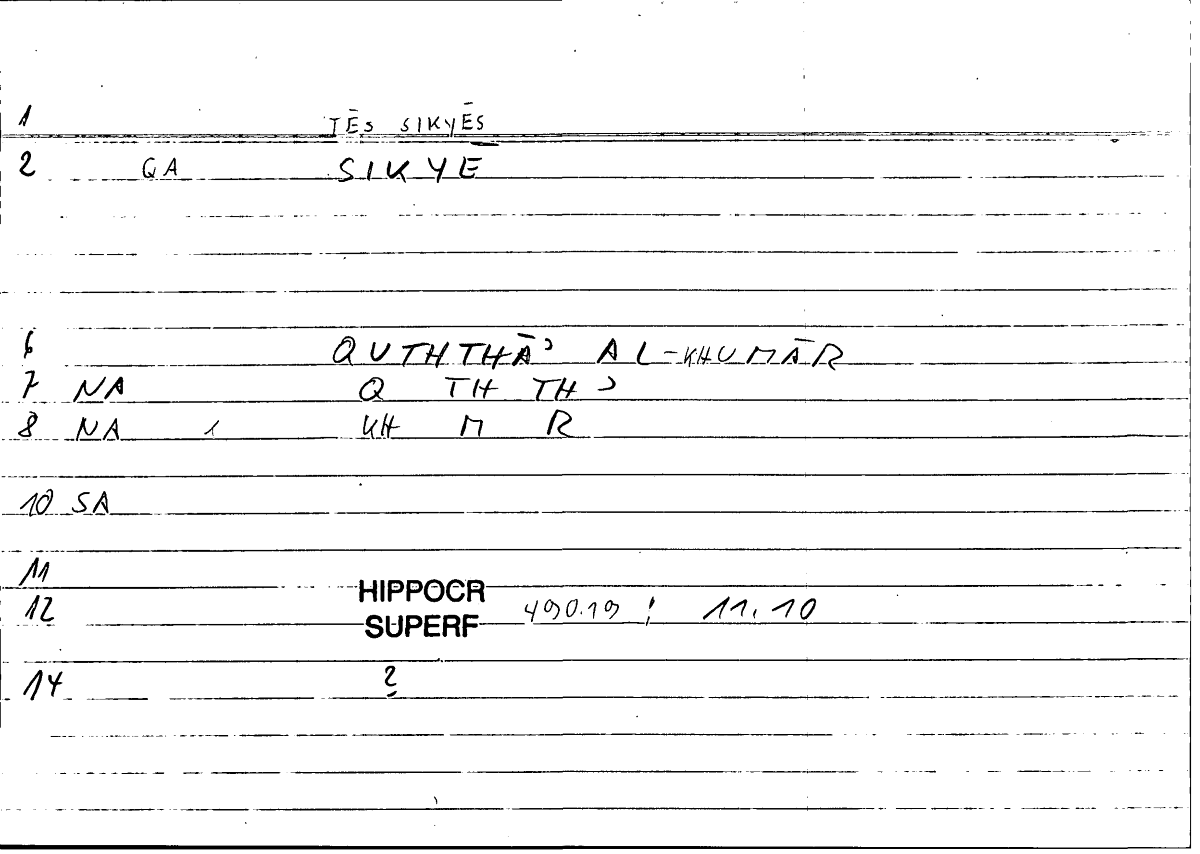 1 TĒS SIKYĒS
2 GA SIKYĒ
6 QUTHTHĀʾ AL-KHUMĀR
7 NA Q TH TH ʾ
8 NA 1 KH M R
10 SA
11
12 HIPPOCR SUPERF 490.19 ; 11.10
14 2